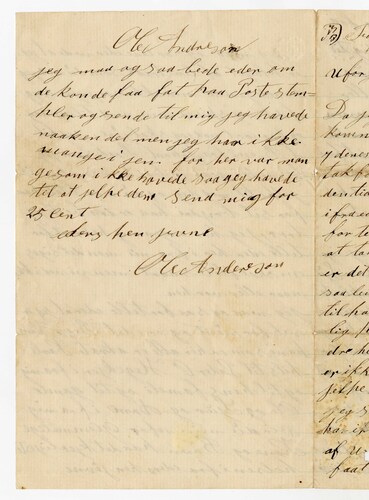 Ole Andreson
jeg maa ogsaa bede eder om
de konde faa fat paa Poste stem-
pler og sende til mig jeg havde
naaken del men jeg har ikke
mange i jen. for her var man
ge som ikke havede saa jeg havde
til at jelpe dem send mig for
25 Cent
eders hen
Ole Anderson
ufor
Da j
komen
ydeves
tak fo
i fra e
for te
at la
er det
saa le
til ha
lig p
er ikk
jelpe
jeg s
har i
af u
faat